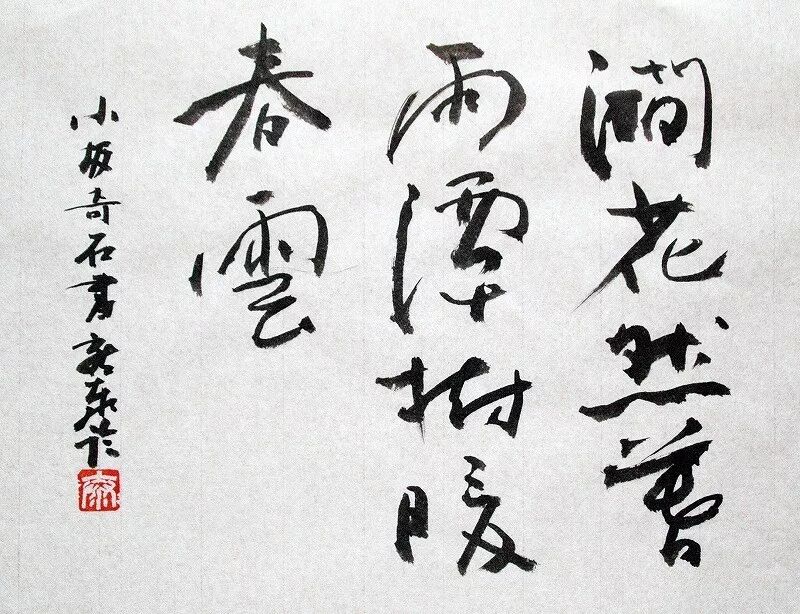 澗花然暮
雨潭樹暖
春雲
小坂奇石書